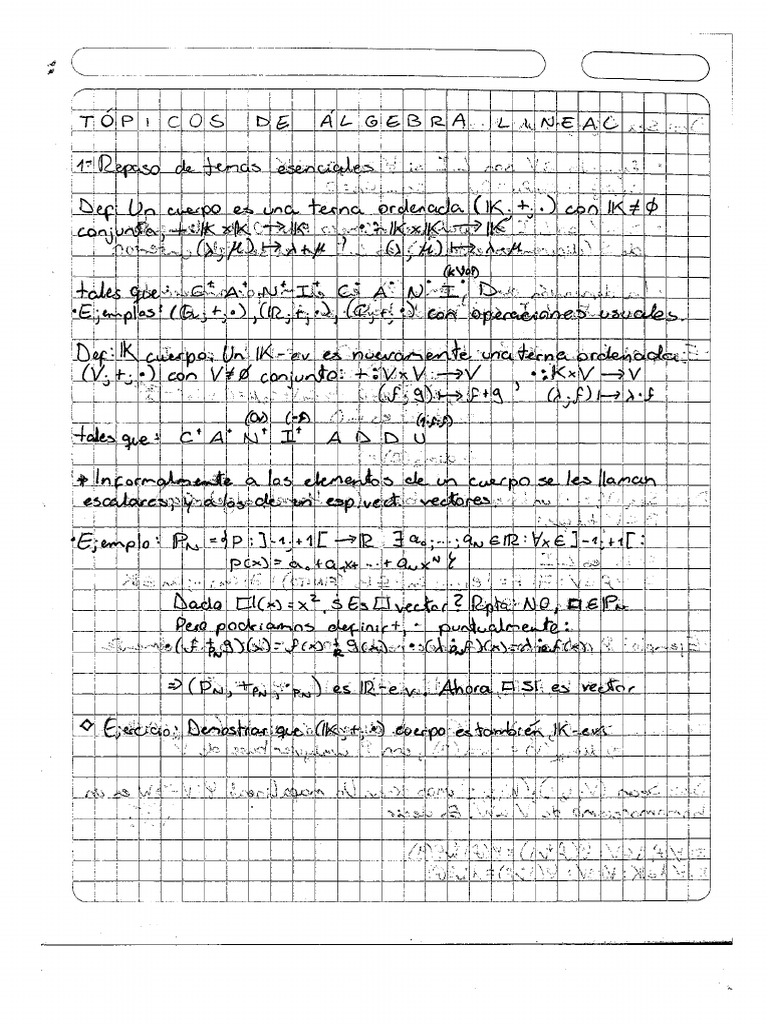 TÓPICOS DE ÁLGEBRA LINEAL
1- Repaso de temas esenciales
Def: Un cuerpo es una terna ordenada (IK; +; ·) con IK ≠ ∅
conjunto, + : IK × IK → IK · : IK × IK → IK
(λ; μ) ↦ λ+μ ; (λ; μ) ↦ λ·μ
(K\{0})
tales que: C⁺ A⁺ N⁺ I⁺, C· A· N· I·, D
· Ejemplos: (Q; +; ·), (IR; +; ·), (C; +; ·) con operaciones usuales.
Def: IK cuerpo. Un IK-ev es nuevamente una terna ordenada
(V; +; ·) con V ≠ ∅ conjunto: + : V × V → V · : K × V → V
(f; g) ↦ f+g ; (λ; f) ↦ λ·f
(0v) (-f) (1·f=f)
tales que: C⁺ A⁺ N⁺ I⁺ A D D U
* Informalmente a los elementos de un cuerpo se les llaman
escalares; y a los de un esp. vect. vectores.
· Ejemplo: IP_N = {p : ]-1;+1[ → IR ∃ a₀; ...; a_N ∈ IR: ∀x ∈ ]-1;+1[ :
p(x) = a₀ + a₁x + ... + a_N x^N}
Dado □(x) = x², ¿Es □ vector? Rpta: NO, □ ∈ IP_N
Pero podríamos definir +, · puntualmente:
· (f +_{P_N} g)(x) = f(x) +_R g(x) · (λ ·_{P_N} f)(x) = λ ·_R f(x)
⇒ (P_N, +_{P_N}, ·_{P_N}) es IR-ev. Ahora □ SÍ es vector
◇ Ejercicio: Demostrar que (IK; +; ·) cuerpo es también IK-ev.